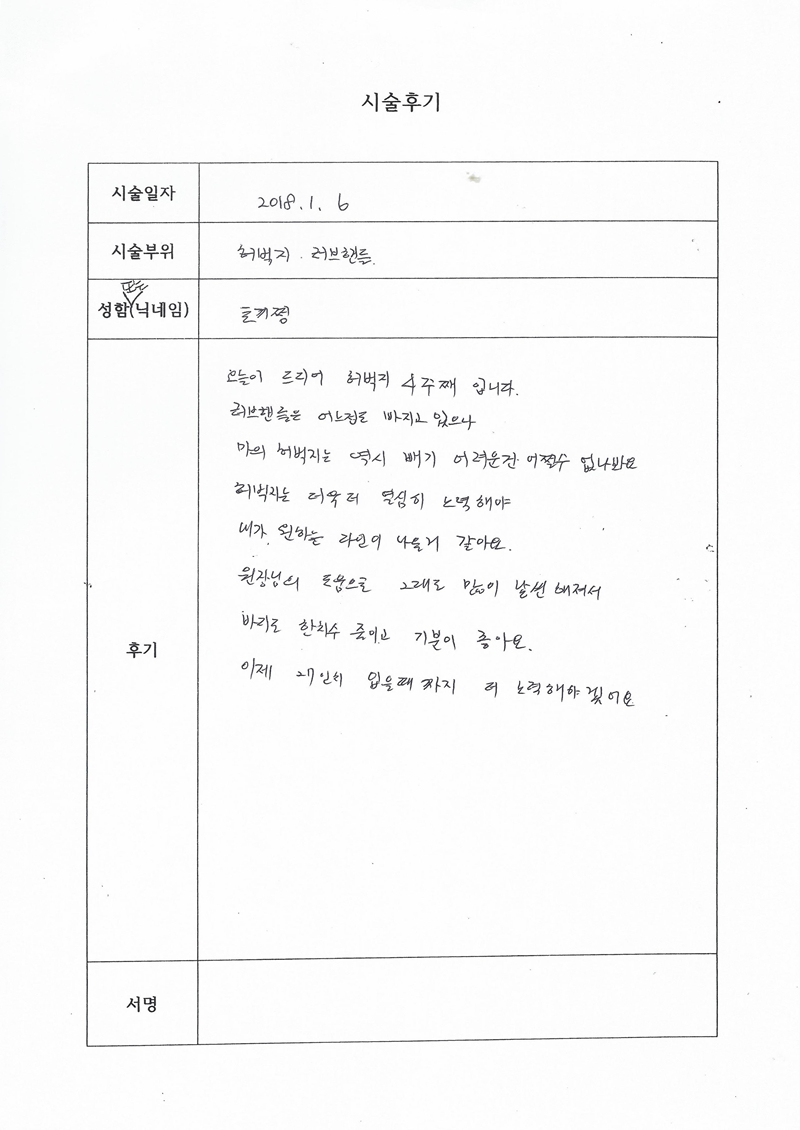 시술후기
시술일자 2018. 1. 6
시술부위 허벅지. 러브핸들.
또는
성함(닉네임)
후기
오늘이 드디어 허벅지 4주째 입니다.
러브핸들은 어느정도 빠지고 있으나
마의 허벅지는 역시 빼기 어려운건 어쩔수 없나봐요
허벅지는 더욱더 열심히 노력해야
내가 원하는 라인이 나올거 같아요.
원장님의 도움으로 그래도 많이 날씬해져서
바지도 한치수 줄이고 기분이 좋아요.
이제 27인치 입을때까지 더 노력해야겠어요
서명